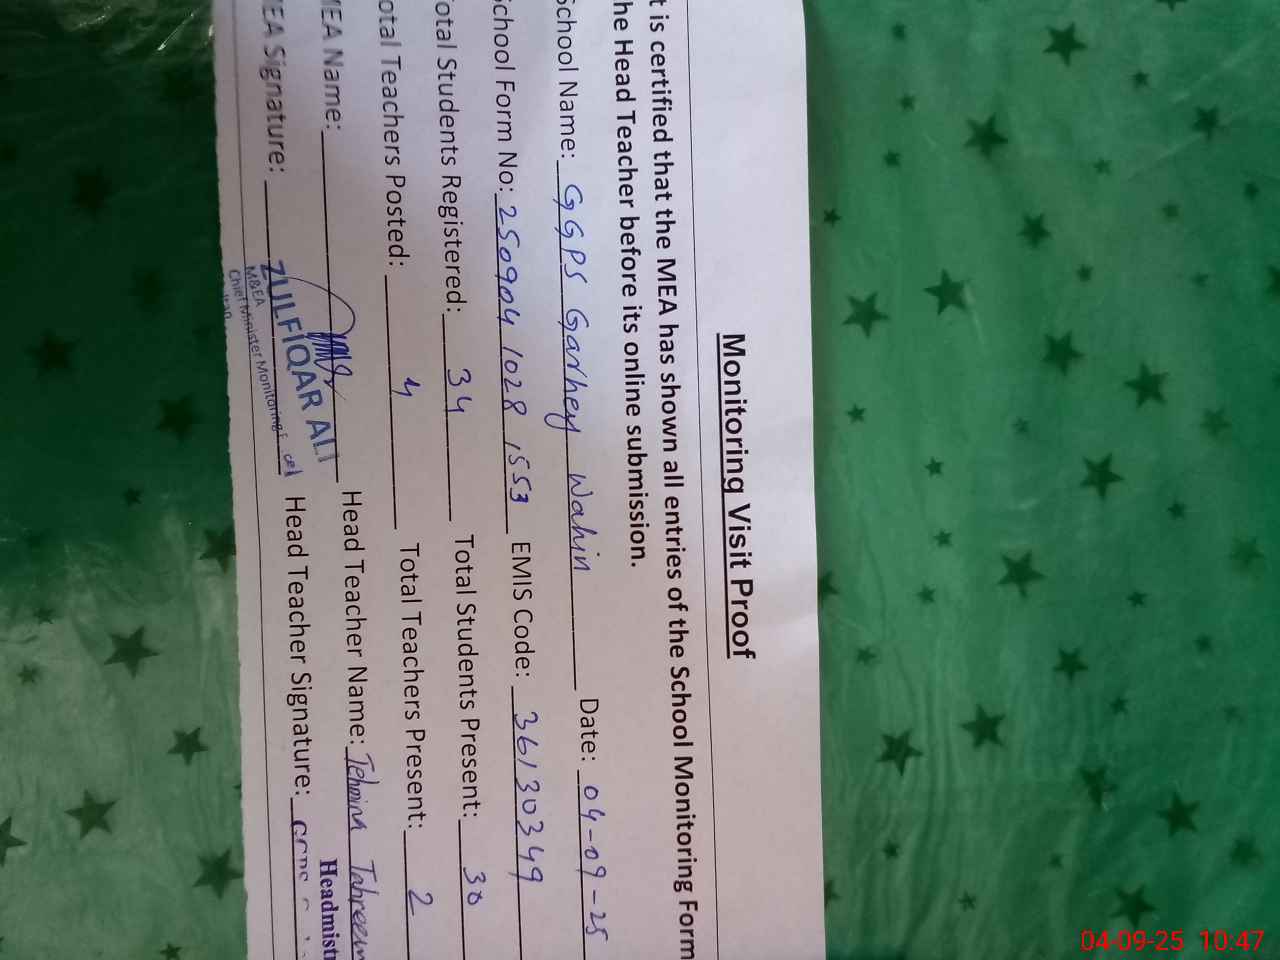 Monitoring Visit Proof
t is certified that the MEA has shown all entries of the School Monitoring Form
he Head Teacher before its online submission.
School Name: GGPS Garhey Wahin Date: 04-09-25
School Form No: 250904 1028 1553 EMIS Code: 36130349
otal Students Registered: 34 Total Students Present: 30
otal Teachers Posted: 4 Total Teachers Present: 2
MEA Name: Head Teacher Name: Tehmina Tahreem
MEA Signature: Head Teacher Signature:
ZULFIQAR ALI
M&EA
Chief Minister Monitoring cel
Headmist
04-09-25 10:47